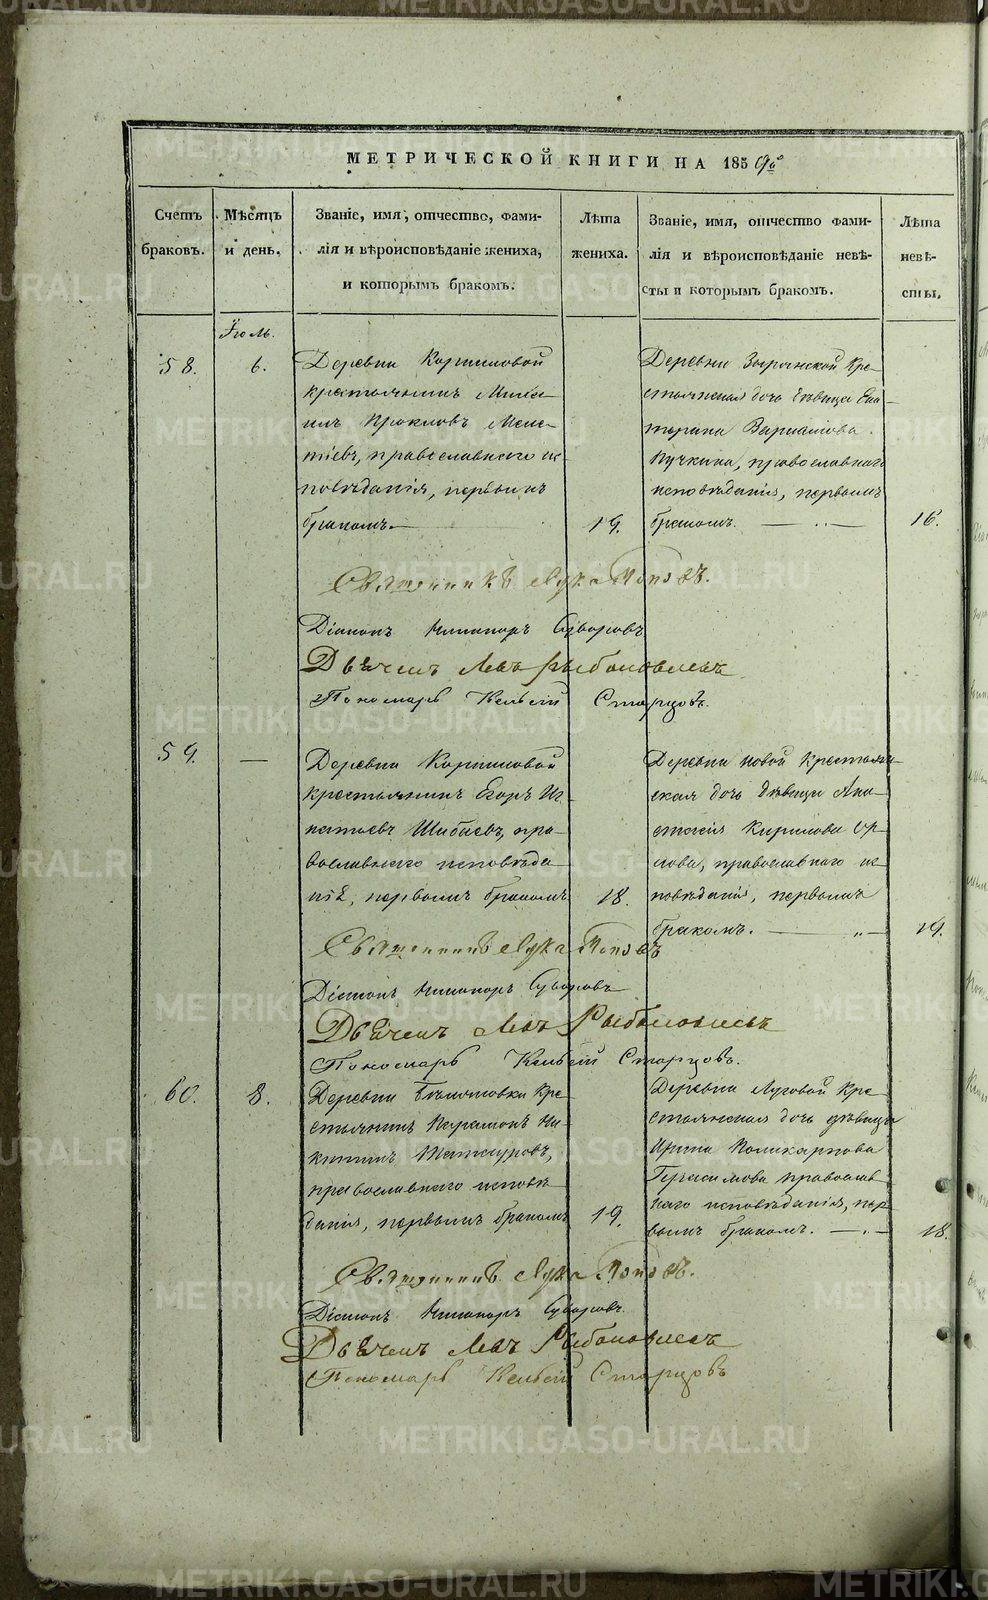 МЕТРИЧЕСКОЙ КНИГИ НА 185
Счетъ браковъ.
Мѣсяцъ и день.
Званіе, имя, отчество, фами-
лія и вѣроисповѣданіе жениха,
и которымъ бракомъ.
Лѣта жениха.
Званіе, имя, отчество фами-
лія и вѣроисповѣданіе невѣ-
сты и которымъ бракомъ.
Лѣта невѣ-
сты.
Іюль.
58.
6.
Деревни Корниловой
крестьянинъ Миха-
илъ
православнаго ис-
повѣданія, первымъ
бракомъ.
19.
Деревни Зырянской кре-
стьянская дочь дѣвица Ека-
терина Варламова
Пучкина, православнаго
исповѣданія, первымъ
бракомъ.
16.
Священникъ Лука Поповъ.
Діаконъ Никаноръ Суворовъ
Дьячекъ Левъ Рыболовлевъ
Пономарь Старцовъ.
59.
—
Деревни Корниловой
крестьянинъ Егоръ Иг-
натьевъ Шибаевъ, пра-
вославнаго исповѣда-
нія, первымъ бракомъ
18.
Деревни Новой крестьян-
ская дочь дѣвица Ана-
стасія Кирилова Ор-
лова, православнаго ис-
повѣданія, первымъ
бракомъ.
19.
Священникъ Лука Поповъ
Діаконъ Никаноръ Суворовъ
Дьячекъ Левъ Рыболовлевъ
Пономарь Старцовъ.
60.
8.
Деревни кре-
стьянинъ Парамонъ Ни-
китинъ
православнаго исповѣ-
данія, первымъ бракомъ
19.
Деревни Луговой кре-
стьянская дочь дѣвица
Ирина Поликарпова
Герасимова православ-
наго исповѣданія, пер-
вымъ бракомъ.
18.
Священникъ Лука Поповъ.
Діаконъ Никаноръ Суворовъ.
Дьячекъ Левъ Рыболовлевъ
Пономарь Старцовъ
METRIKI.GASO-URAL.RU